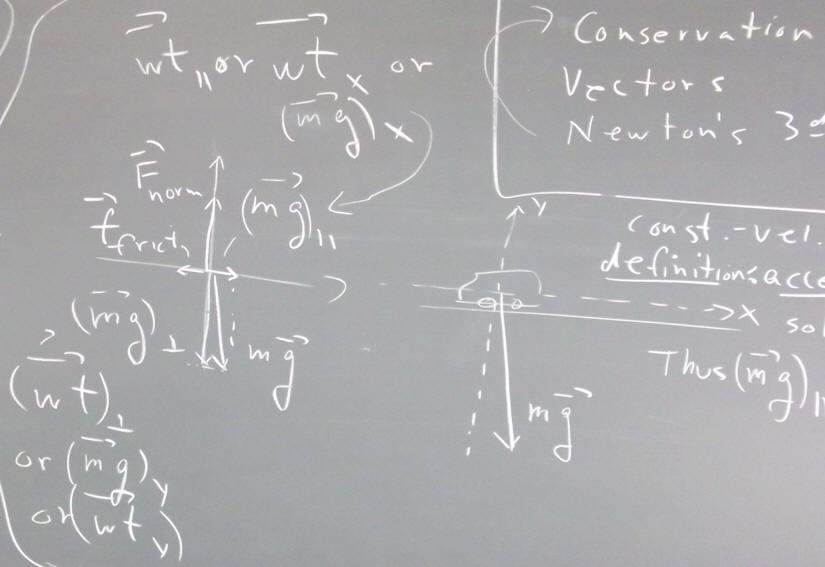 wt∥ or wt x or
(mg) x
F norm
(mg)∥
f frict,
(mg)⊥
mg
(wt)⊥
or (mg) y
or (wt y)
Conservation
Vectors
Newton's 3
y
const.-vel.
definitions: acce
x sol
Thus (mg)∥
mg